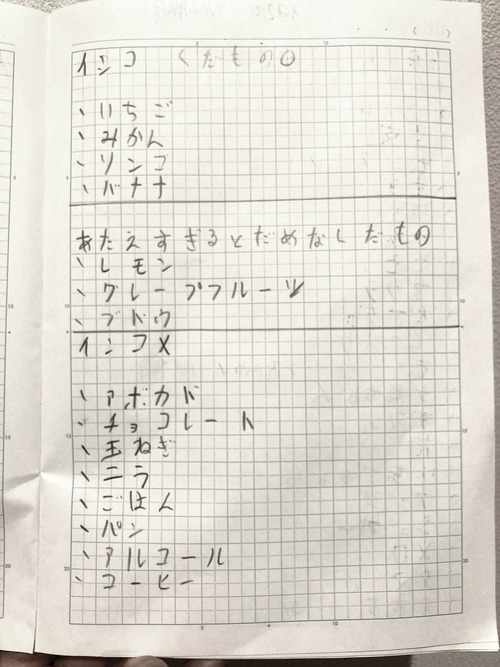 インコ くだもの○
、いちご
、みかん
、リンゴ
、バナナ
あたえすぎるとだめなくだもの
、レモン
、グレープフルーツ
、ブドウ
インコ×
、アボカド
、チョコレート
、玉ねぎ
、ニラ
、ごはん
、パン
、アルコール
、コーヒー